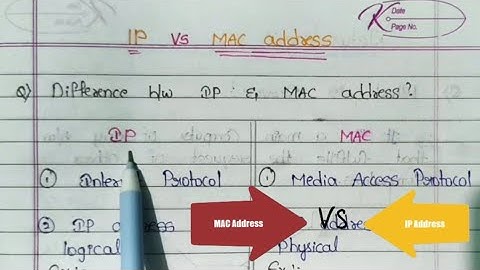 Date
Page No.
IP vs MAC address
Q) Difference b/w IP & MAC address?
IP
MAC
① Inter Protocol
① Media Access Protocol
② IP
logical
Physical
MAC Address
VS
IP Address